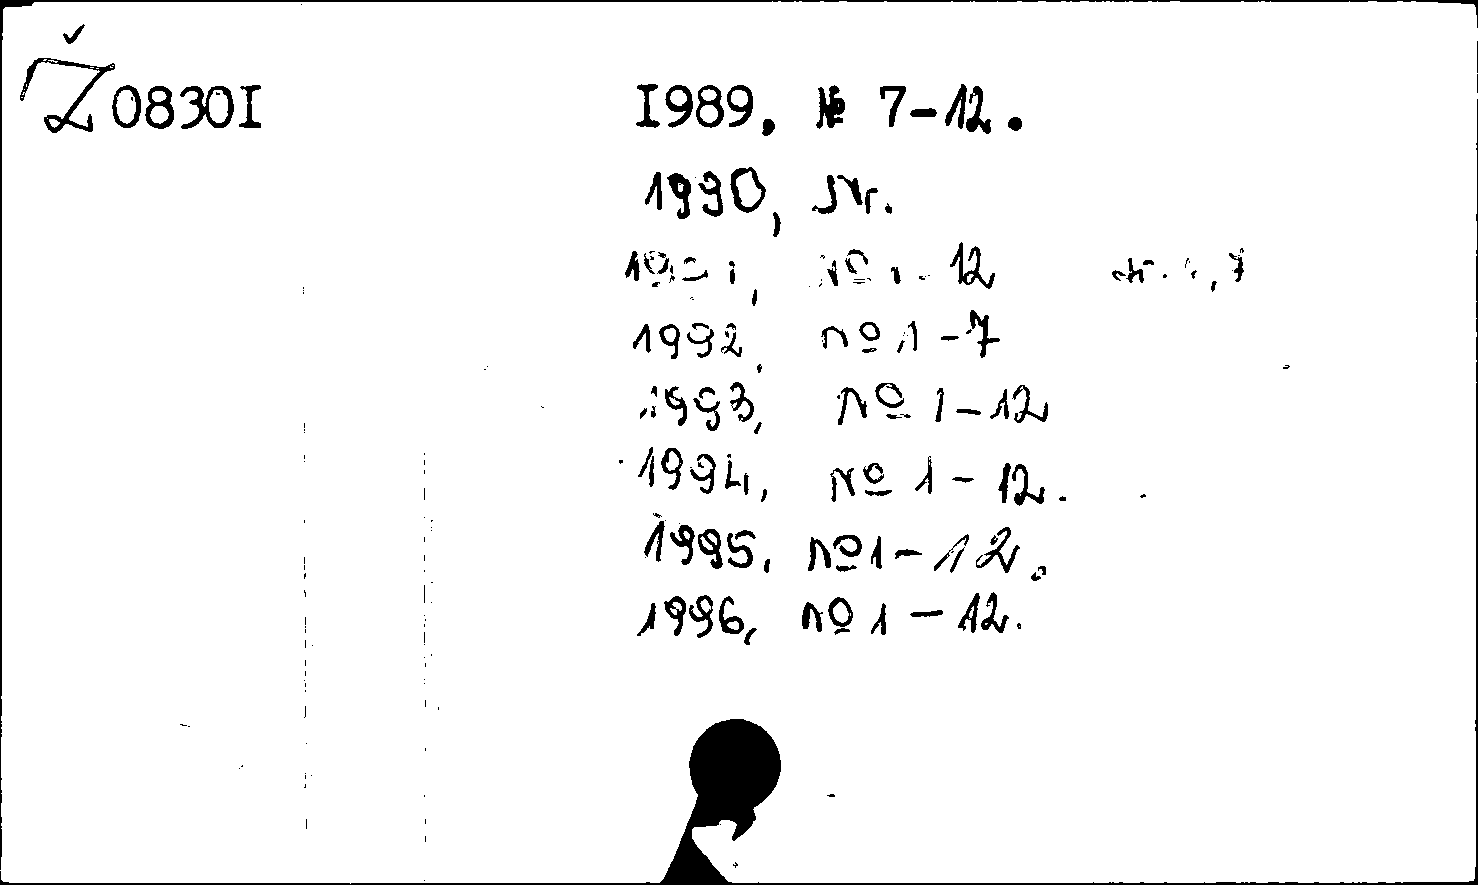 Ž 0830I
I989, № 7-12.
1990, Nr.
1991, № 1-12
1992, nº 1-7
1993, nº 1-12
1994, Nº 1-12.
1995, nº 1-12.
1996, nº 1-12.